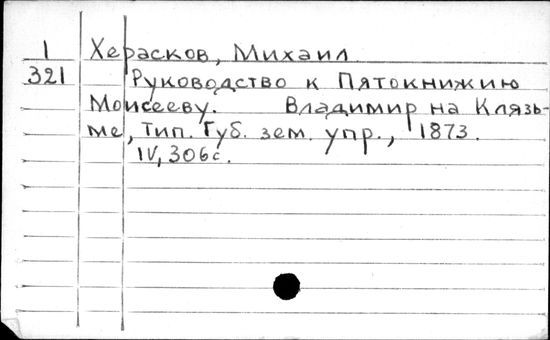 1 Херасков, Михаил
321 Руководство к Пятокнижию
Моисееву. Владимир на Клязь-
ме, Тип. Губ. зем. упр., 1873.
IV, 306с.